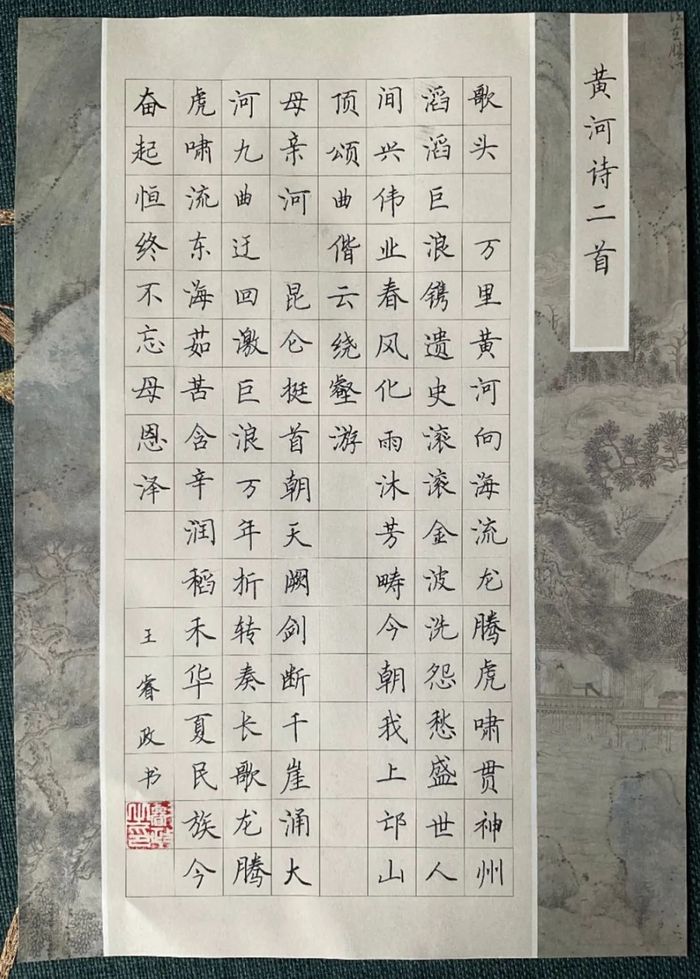 黄河诗二首
歌头 万里黄河向海流龙腾虎啸贯神州
滔滔巨浪镌遗史滚滚金波洗怨愁盛世人
间兴伟业春风化雨沐芳畴今朝我上邙山
顶颂曲偕云绕壑游
母亲河 昆仑挺首朝天阙剑断千崖涌大
河九曲迂回激巨浪万年折转奏长歌龙腾
虎啸流东海茹苦含辛润稻禾华夏民族今
奋起恒终不忘母恩泽
王睿政书